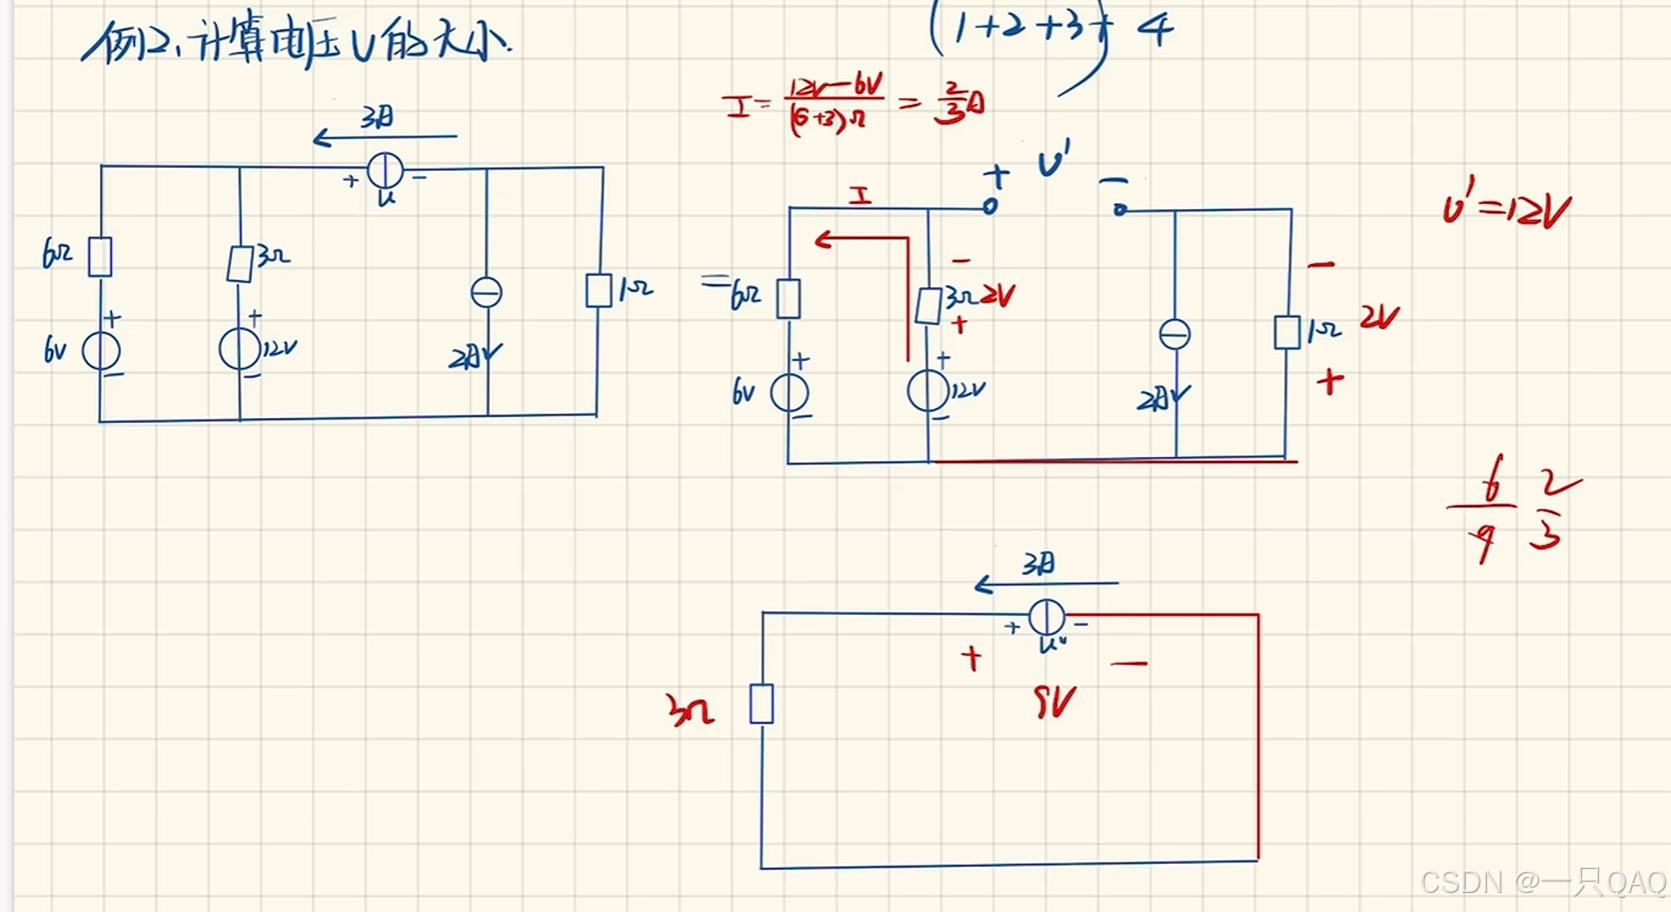 例2、计算电压U的大小.
(1+2+3)+4
I = 12V-6V / (6+3)Ω = 2/3 A
3A
+ U -
6Ω
3Ω
1Ω
+ 6V -
+ 12V -
2A
=
+ U' -
U'=12V
I
6Ω
3Ω 2V
- +
1Ω 2V
- +
+ 6V -
+ 12V -
2A
6/9 2/3
3A
+ U" -
+ 9V -
3Ω
CSDN @一只QAQ